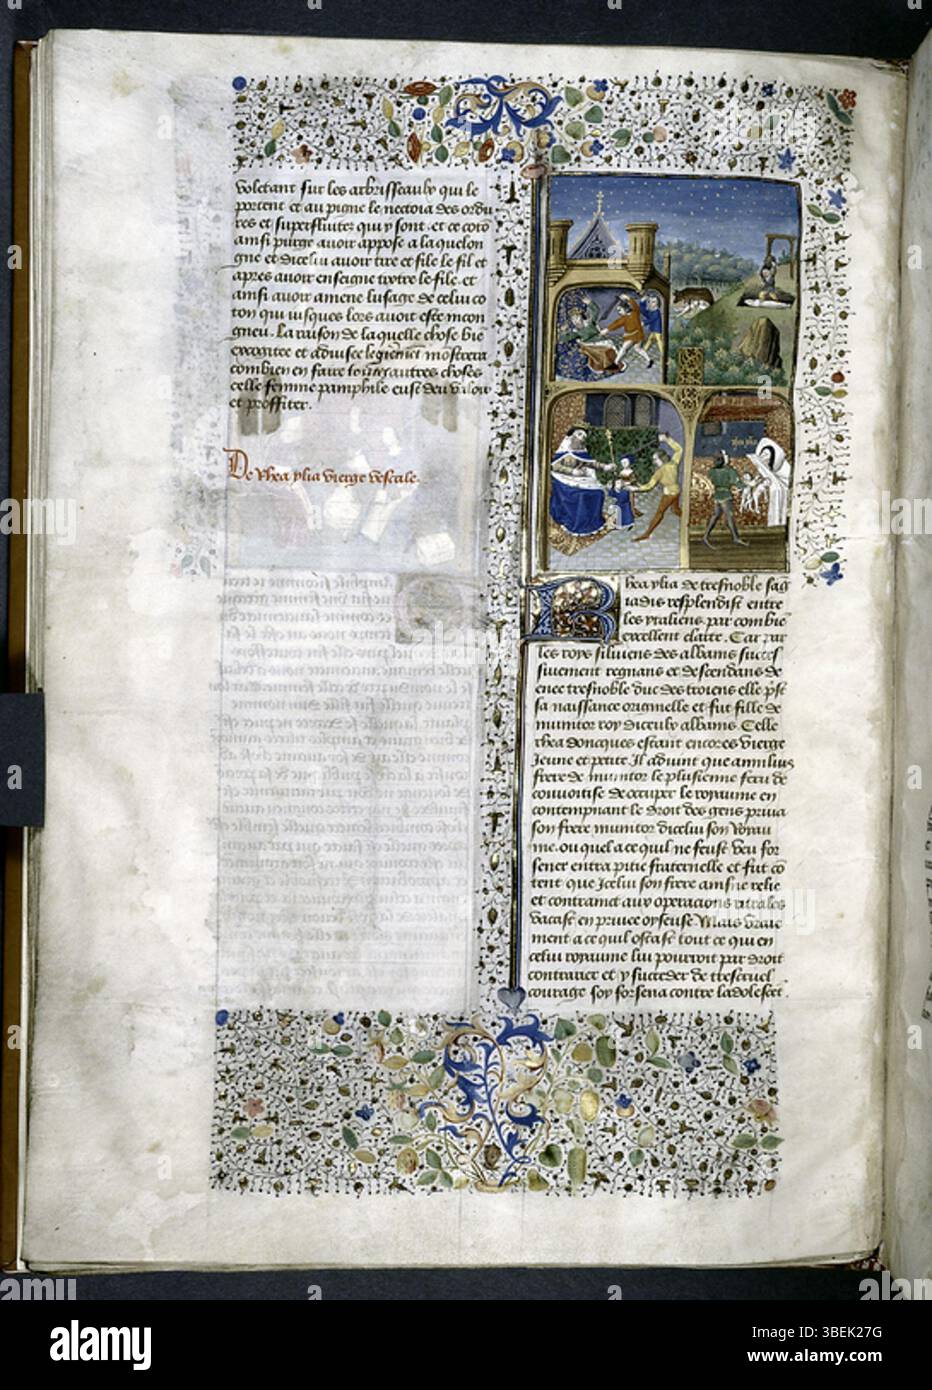 voletant sur les arbrisseaulx qui le
portent et au pigne le nectoia des ordu
res et superfluitez qui y sont. et ce coto
ainsi purge avoir appose a la quelon
gne et dicelui avoir tire et file le fil et
apres avoir enseigne tixtre le file. et
ainsi avoir amene lusage de celui co
ton qui iusques lors avoit este incon
gneu. La raison de laquelle chose bie
excogitee et advisee legierem̄t mostrera
combien en faire toutes autres choses
celle femme pamphile eust deu valoir
et proffiter.
De rhea ylia vierge vestale.
Rhea ylia de tresnoble sag
iadis resplendist entre
les ytaliens par combie
excellent clarte. Car par
les roys silviens des albains succes
sivement regnans et descendans de
enee tresnoble duc des troiens elle p̄st
sa naissance originelle et fut fille de
munitor roy diceulx albains. Celle
rhea doncques estant encores vierge
Jeune et petite. Il advint que amilius
frere de munitor le plus ienne feru de
convoitise de occuper le royaume en
contempnant le droit des gens priva
son frere munitor dicelui son roiau
me. ou quel a ce quil ne feust veu for
sener entra pitie fraternelle et fut cō
tent que Icelui son frere ainsi relie
et contraint aux operacions rurales
vacast en privee oyseuse. Mais vraie
ment a ce quil ostast tout ce qui en
celui royaume lui pourroit par droit
contrarier et y succeder de trescruel
courage soy forsena contre ladolescēt
alamy
Image ID: 3BEK27G
www.alamy.com